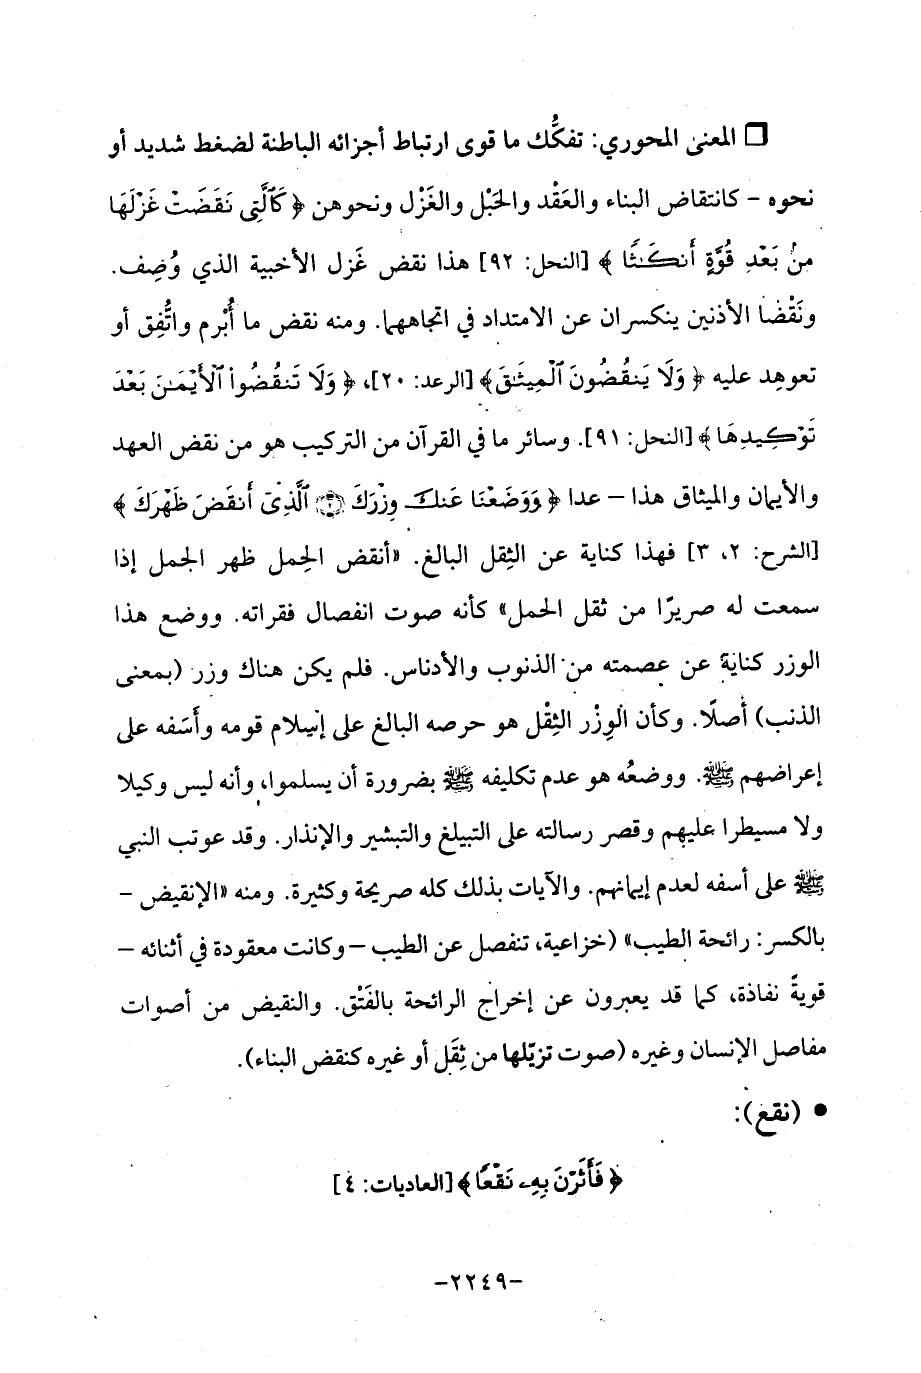 ❑ المعنى المحوري: تفكُّك ما قوى ارتباط أجزائه الباطنة لضغط شديد أو
نحوه - كانتقاض البناء والعَقْد والحَبْل والغَزْل ونحوهن ﴿ كَٱلَّتِى نَقَضَتْ غَزْلَهَا
مِنۢ بَعْدِ قُوَّةٍ أَنكَـٰثًا ﴾ [النحل: ٩٢] هذا نقض غَزل الأخبية الذي وُصِف.
ونَقْضَا الأذنين ينكسران عن الامتداد في اتجاههما. ومنه نقض ما أُبْرم واتُّفِق أو
تعوهد عليه ﴿ وَلَا يَنقُضُونَ ٱلْمِيثَـٰقَ﴾ [الرعد: ٢٠]، ﴿ وَلَا تَنقُضُوا۟ ٱلْأَيْمَـٰنَ بَعْدَ
تَوْكِيدِهَا ﴾ [النحل: ٩١]. وسائر ما في القرآن من التركيب هو من نقض العهد
والأيمان والميثاق هذا - عدا ﴿ وَوَضَعْنَا عَنكَ وِزْرَكَ ۝٢ ٱلَّذِىٓ أَنقَضَ ظَهْرَكَ ﴾
[الشرح: ٢، ٣] فهذا كناية عن الثِقل البالغ. «أنقض الحِمل ظهر الجمل إذا
سمعت له صريرًا من ثقل الحمل» كأنه صوت انفصال فقراته. ووضع هذا
الوزر كناية عن عصمته من الذنوب والأدناس. فلم يكن هناك وزر (بمعنى
الذنب) أصلًا. وكأن الوِزْر الثِقْل هو حرصه البالغ على إسلام قومه وأَسَفه على
إعراضهم ﷺ. ووضعُه هو عدم تكليفه ﷺ بضرورة أن يسلموا، وأنه ليس وكيلا
ولا مسيطرا عليهم وقصر رسالته على التبيلغ والتبشير والإنذار. وقد عوتب النبي
ﷺ على أسفه لعدم إيمانهم. والآيات بذلك كله صريحة وكثيرة. ومنه «الإنقيض -
بالكسر: رائحة الطيب» (خزاعية، تنفصل عن الطيب - وكانت معقودة في أثنائه -
قويةً نفاذة، كما قد يعبرون عن إخراج الرائحة بالفَتْق. والنقيض من أصوات
مفاصل الإنسان وغيره (صوت تزيّلها من ثِقَل أو غيره كنقض البناء).
• (نقع):
﴿ فَأَثَرْنَ بِهِۦ نَقْعًا ﴾ [العاديات: ٤]
-٢٢٤٩-